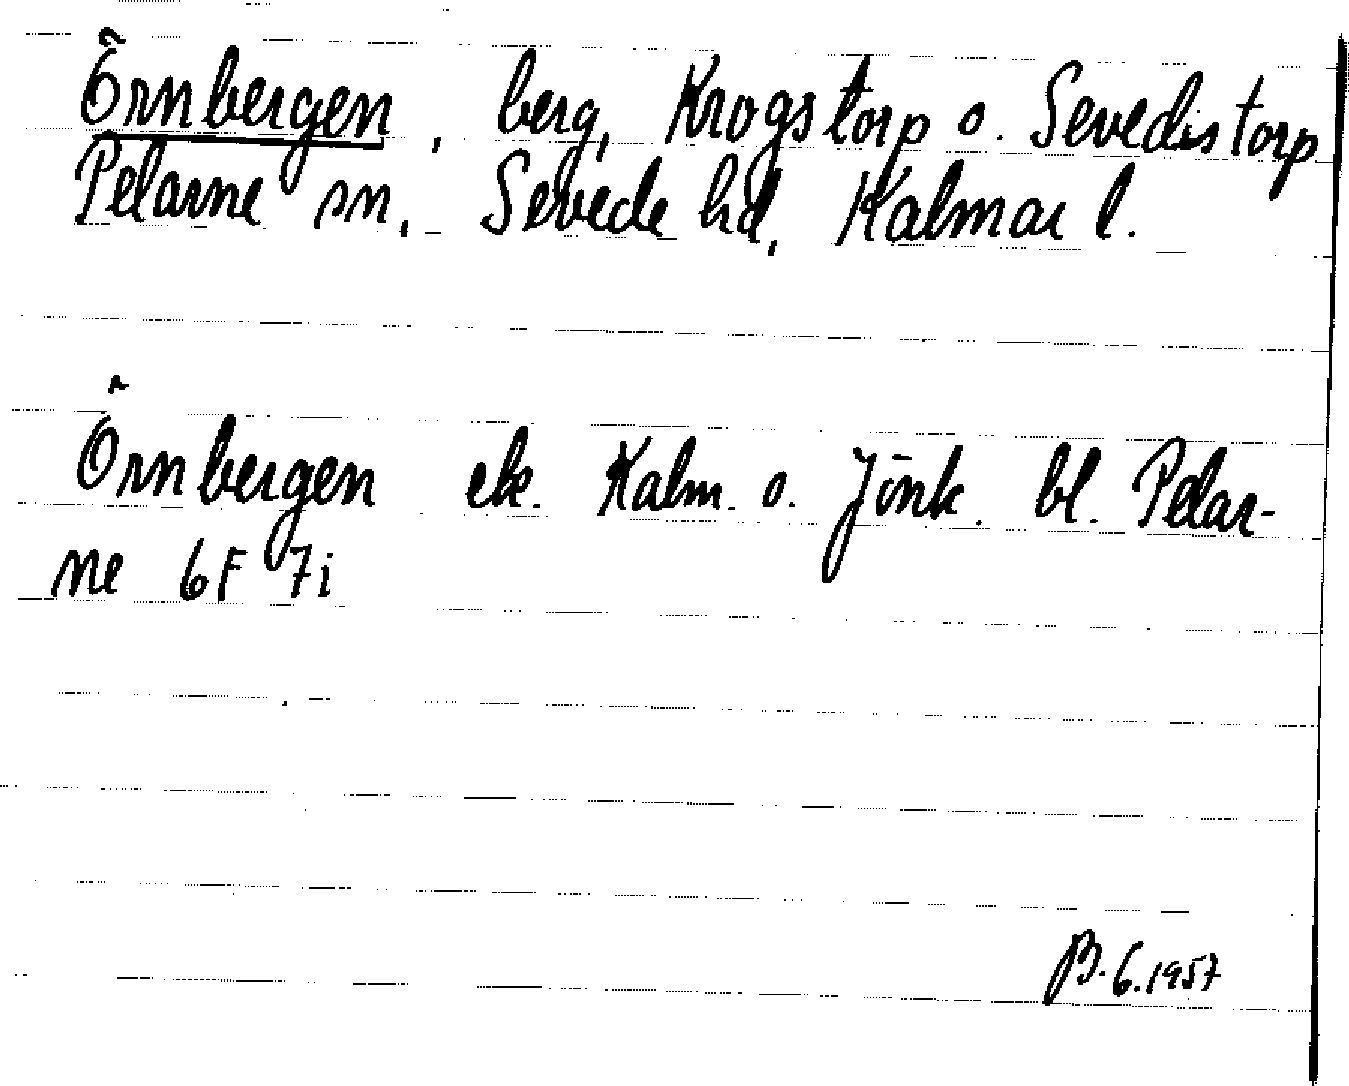 Örnbergen, berg, Krogstorp o. Sevedistorp
Pelarne sn, Sevede hd, Kalmar l.
Örnbergen ek. Kalm. o. Jönk. bl. Pelar-
ne 6F 7i
B. G. 1957